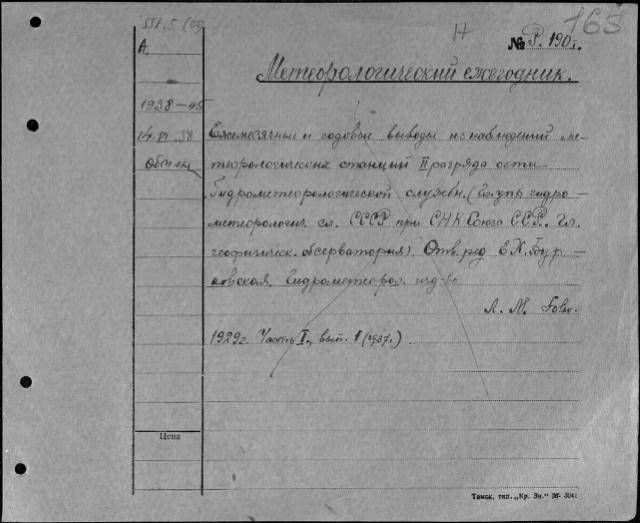 551.5 (05)
Н
165
№ Р. 190 г.
А.
Метеорологический ежегодник.
1938-45
14 VI 38
Обмен
Ежемесячные и годовые выводы из наблюдений ме-
теорологических станций II разряда сети
Гидрометеорологической службы. (Гл. упр. гидро-
метеоролог. сл. СССР при СНК Союза ССР. Гл.
геофизическ. обсерватория). Отв. ред. Е. Х. Бур-
ковская. Гидрометеорол. изд-во
Л. М.
1929г. Часть I., вып. 1 (1937.)
Цена
Томск, тип. „Кр. Зн." 36-3041